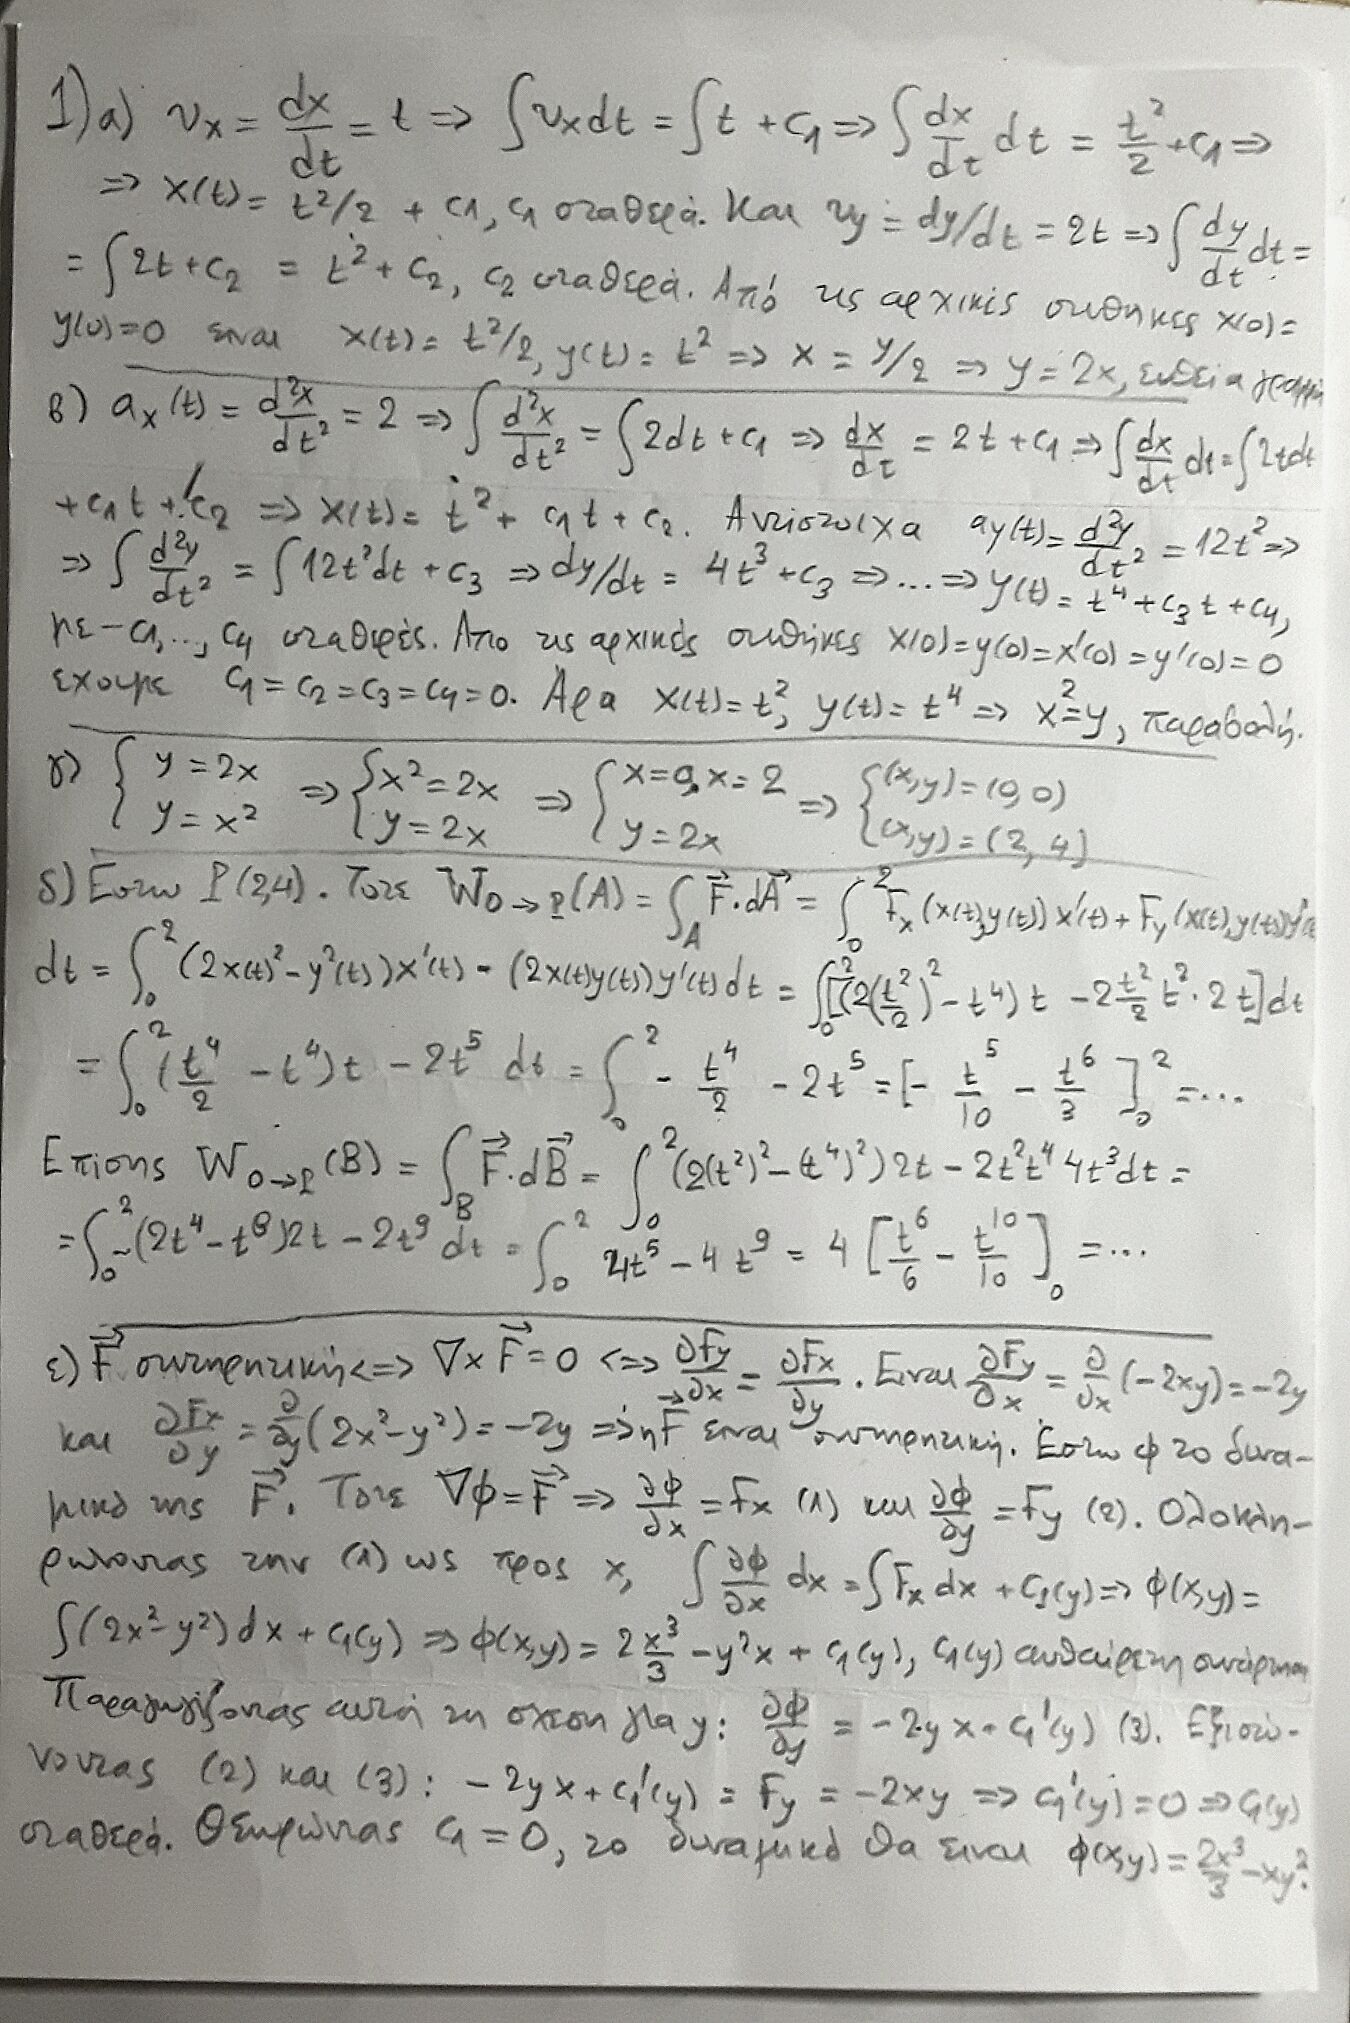 1) α) υx = dx/dt = t ⇒ ∫υxdt = ∫t + c1 ⇒ ∫dx/dt dt = t²/2 + c1 ⇒
⇒ x(t) = t²/2 + c1, c1 σταθερά. Και υy = dy/dt = 2t ⇒ ∫dy/dt dt =
= ∫2t + c2 = t² + c2, c2 σταθερά. Από τις αρχικές συνθηκες x(0) =
y(0) = 0 ειναι x(t) = t²/2, y(t) = t² ⇒ x = y/2 ⇒ y = 2x, ευθεία γραμμή
β) ax(t) = d²x/dt² = 2 ⇒ ∫d²x/dt² = ∫2dt + c1 ⇒ dx/dt = 2t + c1 ⇒ ∫dx/dt dt = ∫2tdt
+ c1t + c2 ⇒ x(t) = t² + c1t + c2. Αντιστοιχα ay(t) = d²y/dt² = 12t² ⇒
⇒ ∫d²y/dt² = ∫12t²dt + c3 ⇒ dy/dt = 4t³ + c3 ⇒ ... ⇒ y(t) = t⁴ + c3t + c4,
με c1, ..., c4 σταθερές. Απο τις αρχικές συνθήκες x(0) = y(0) = x'(0) = y'(0) = 0
εχουμε c1 = c2 = c3 = c4 = 0. Αρα x(t) = t², y(t) = t⁴ ⇒ x² = y, παραβολή.
γ) { y = 2x, y = x² ⇒ { x² = 2x, y = 2x ⇒ { x = 0, x = 2, y = 2x ⇒ { (x,y) = (0,0), (x,y) = (2,4)
δ) Εστω P(2,4). Τοτε W0→P(A) = ∫A F⃗·dA⃗ = ∫0² Fx(x(t),y(t))x'(t) + Fy(x(t),y(t))y'(t)
dt = ∫0² (2x(t)² - y²(t))x'(t) - (2x(t)y(t))y'(t)dt = ∫0² [(2(t²/2)² - t⁴)t - 2 t²/2 t²·2t]dt
= ∫0² (t⁴/2 - t⁴)t - 2t⁵ dt = ∫0² - t⁴/2 - 2t⁵ = [- t⁵/10 - t⁶/3]0² = ...
Επισης W0→P(B) = ∫B F⃗·dB⃗ = ∫0² (2(t²)² - (t⁴)²)2t - 2t²t⁴4t³dt =
= ∫0² (2t⁴ - t⁸)2t - 2t⁹ dt = ∫0² 4t⁵ - 4t⁹ = 4[t⁶/6 - t¹⁰/10]0 = ...
ε) F⃗ συντηρητική ⇔ ∇×F⃗ = 0 ⇔ ∂Fy/∂x = ∂Fx/∂y. Ειναι ∂Fy/∂x = ∂/∂x(-2xy) = -2y
και ∂Fx/∂y = ∂/∂y(2x² - y²) = -2y ⇒ η F⃗ ειναι συντηρητική. Εστω φ το δυνα-
μικό της F⃗. Τοτε ∇φ = F⃗ ⇒ ∂φ/∂x = Fx (1) και ∂φ/∂y = Fy (2). Ολοκλη-
ρώνοντας την (1) ως προς x, ∫∂φ/∂x dx = ∫Fx dx + c1(y) ⇒ φ(x,y) =
∫(2x² - y²)dx + c1(y) ⇒ φ(x,y) = 2 x³/3 - y²x + c1(y), c1(y) αυθαίρετη συνάρτηση
Παραγωγίζοντας αυτή τη σχεση για y: ∂φ/∂y = -2yx + c1'(y) (3). Εξισώ-
νοντας (2) και (3): -2yx + c1'(y) = Fy = -2xy ⇒ c1'(y) = 0 ⇒ c1(y)
σταθερά. Θεωρώντας c1 = 0, το δυναμικό θα ειναι φ(x,y) = 2x³/3 - xy².